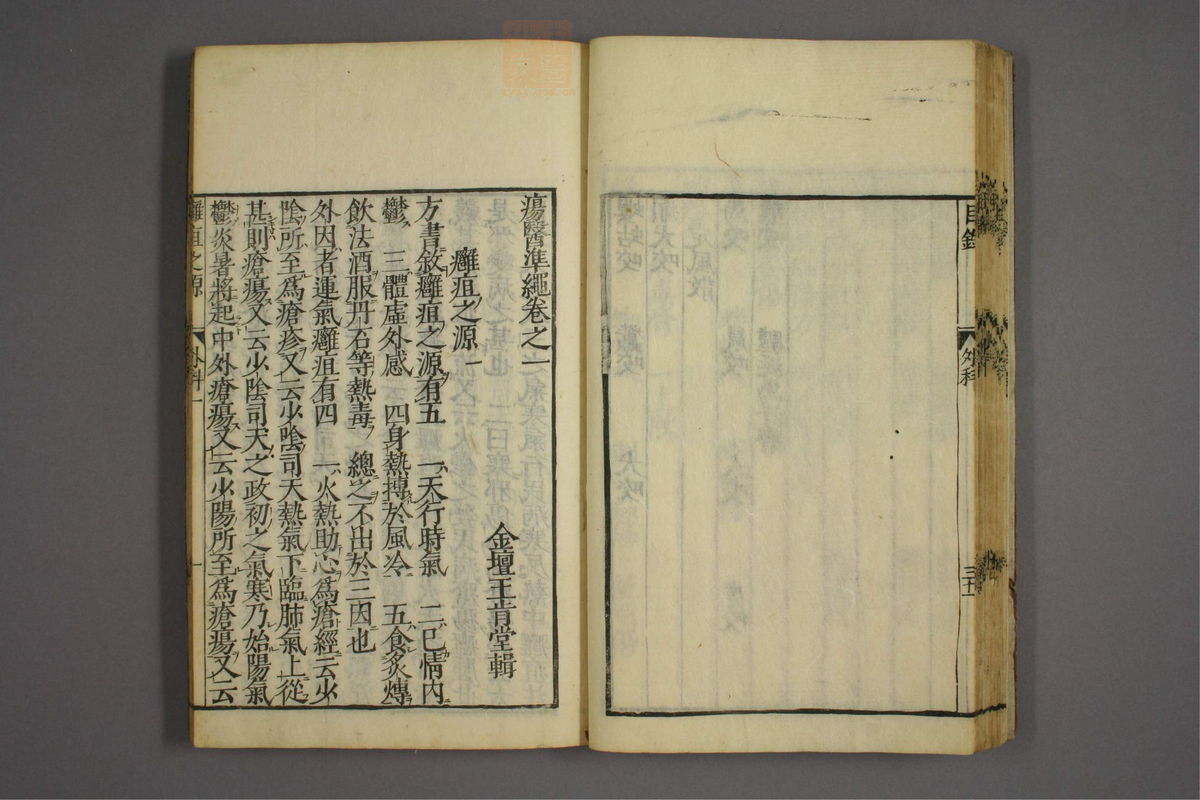 目錄
外科
三十一
瘍醫準繩卷之一
金壇王肯堂輯
癰疽之源一
方書敘癰疽之源有五 一天行時氣 二七情內
鬱 三體虛外感 四身熱搏於風冷 五食炙煿
飲法酒服丹石等熱毒 總之不出於三因也
外因者運氣癰疽有四 一火熱助心爲瘡經云少
陰所至爲瘡疹又云少陰司天熱氣下臨肺氣上從
甚則瘡瘍又云少陰司天之政初之氣寒乃始陽氣
鬱炎暑將起中外瘡瘍又云少陽所至爲瘡瘍又云
癰疽之源
外科一
一